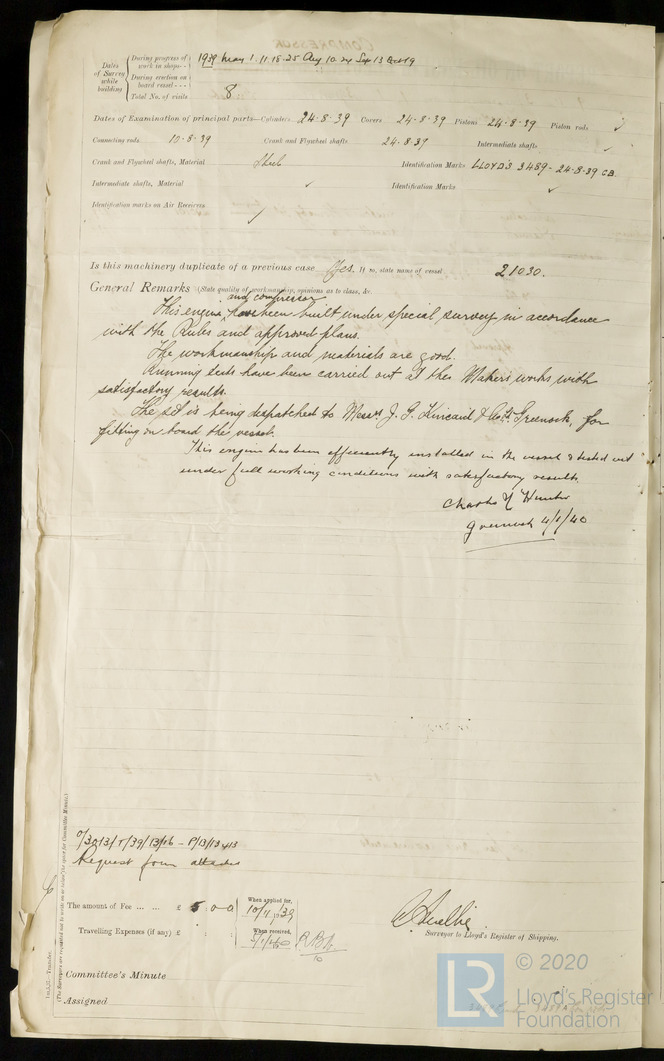 COMPRESSOR
Dates of Survey while building
During progress of work in shops - - 1939 May 1. 11. 15. 25 Aug 10. 24 Sep 13 Oct 19
During erection on board vessel - - -
Total No. of visits 8
Dates of Examination of principal parts—Cylinders 24.8.39 Covers 24.8.39 Pistons 24.8.39 Piston rods ✓
Connecting rods 10.8.39 Crank and Flywheel shafts 24.8.39 Intermediate shafts ✓
Crank and Flywheel shafts, Material Steel Identification Marks LLOYD'S 3489 - 24.8.39 CB.
Intermediate shafts, Material ✓ Identification Marks ✓
Identification marks on Air Receivers ✓
Is this machinery duplicate of a previous case Yes. If so, state name of vessel 21030.
General Remarks (State quality of workmanship, opinions as to class, &c.
and compressor
This engine have been built under special survey in accordance
with the Rules and approved plans.
The workmanship and materials are good.
Running tests have been carried out at the Makers works with
satisfactory results.
The set is being despatched to Messrs J. G. Kincaid & Co Ltd. Greenock, for
fitting on board the vessel.
This engine has been efficiently installed in the vessel & tested out
under full working conditions with satisfactory results.
Charles Hunter
Greenock 4/1/40
(The Surveyors are requested not to write on or below the space for Committee Minute.)
Transfer.
Request form attached
The amount of Fee ... ... £ 5.0.0 When applied for, 10/11/1939
Travelling Expenses (if any) £ : : When received,
Surveyor to Lloyd's Register of Shipping.
Committee's Minute
Assigned
LR © 2020
Lloyd's Register
Foundation